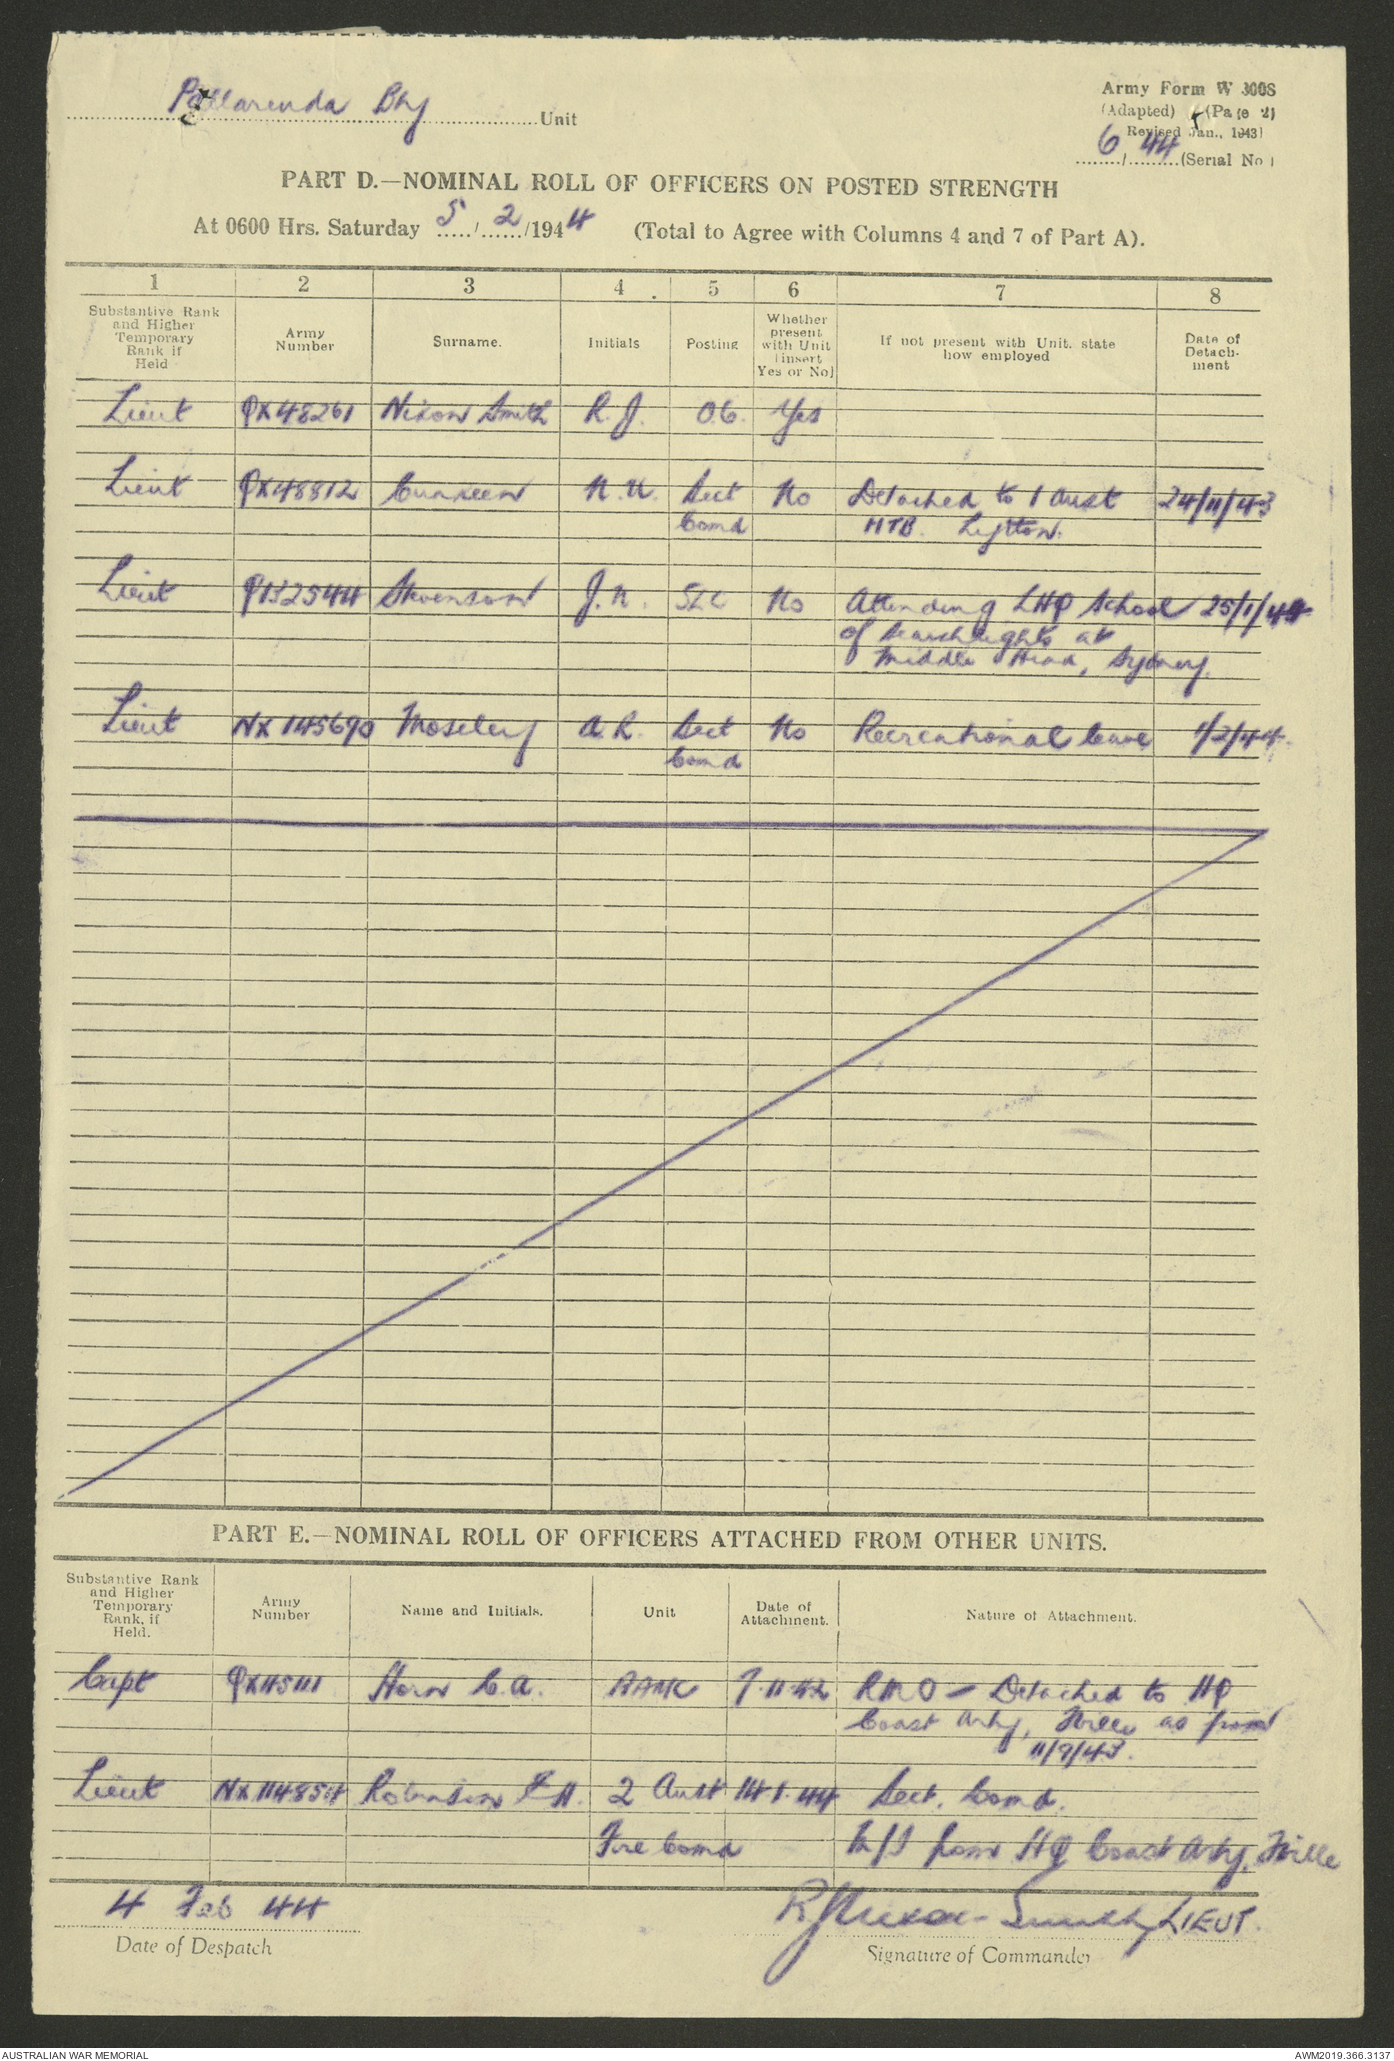 Pallarenda Bty Unit
Army Form W 3008
(Adapted) (Page 2)
Revised Jan., 1943)
6/44 (Serial No.)
PART D.—NOMINAL ROLL OF OFFICERS ON POSTED STRENGTH
At 0600 Hrs. Saturday 5/2/1944 (Total to Agree with Columns 4 and 7 of Part A).
1 2 3 4 5 6 7 8
Substantive Rank and Higher Temporary Rank if Held
Army Number
Surname.
Initials
Posting
Whether present with Unit (insert Yes or No)
If not present with Unit, state how employed
Date of Detachment
Lieut QX48261 Nixon Smith R.J. O.C. Yes
Lieut QX48812 N.K. Sect No Detached to 1 Aust 24/11/43
Comd MTB. Lytton.
Lieut Q132544 Stevenson J.N. SLC No Attending LHQ School 25/1/44
of Searchlights at
Middle Head, Sydney.
Lieut NX145690 Moseley A.R. Sect No Recreational leave 1/2/44.
Comd
PART E.—NOMINAL ROLL OF OFFICERS ATTACHED FROM OTHER UNITS.
Substantive Rank and Higher Temporary Rank, if Held.
Army Number
Name and Initials.
Unit
Date of Attachment.
Nature of Attachment.
Capt QX45111 Horn C.A. AAMC 7.11.42 RMO - Detached to HQ
Coast Arty, Tville as from
11/9/43.
Lieut NX114854 Robinson F.H. 2 Aust 14.1.44 Sect. Comd.
Fire Comd M/I from HQ Coast Arty, Tville
4 Feb 44
Date of Despatch
RJNixon-Smith, LIEUT.
Signature of Commander
AUSTRALIAN WAR MEMORIAL
AWM2019.366.3137